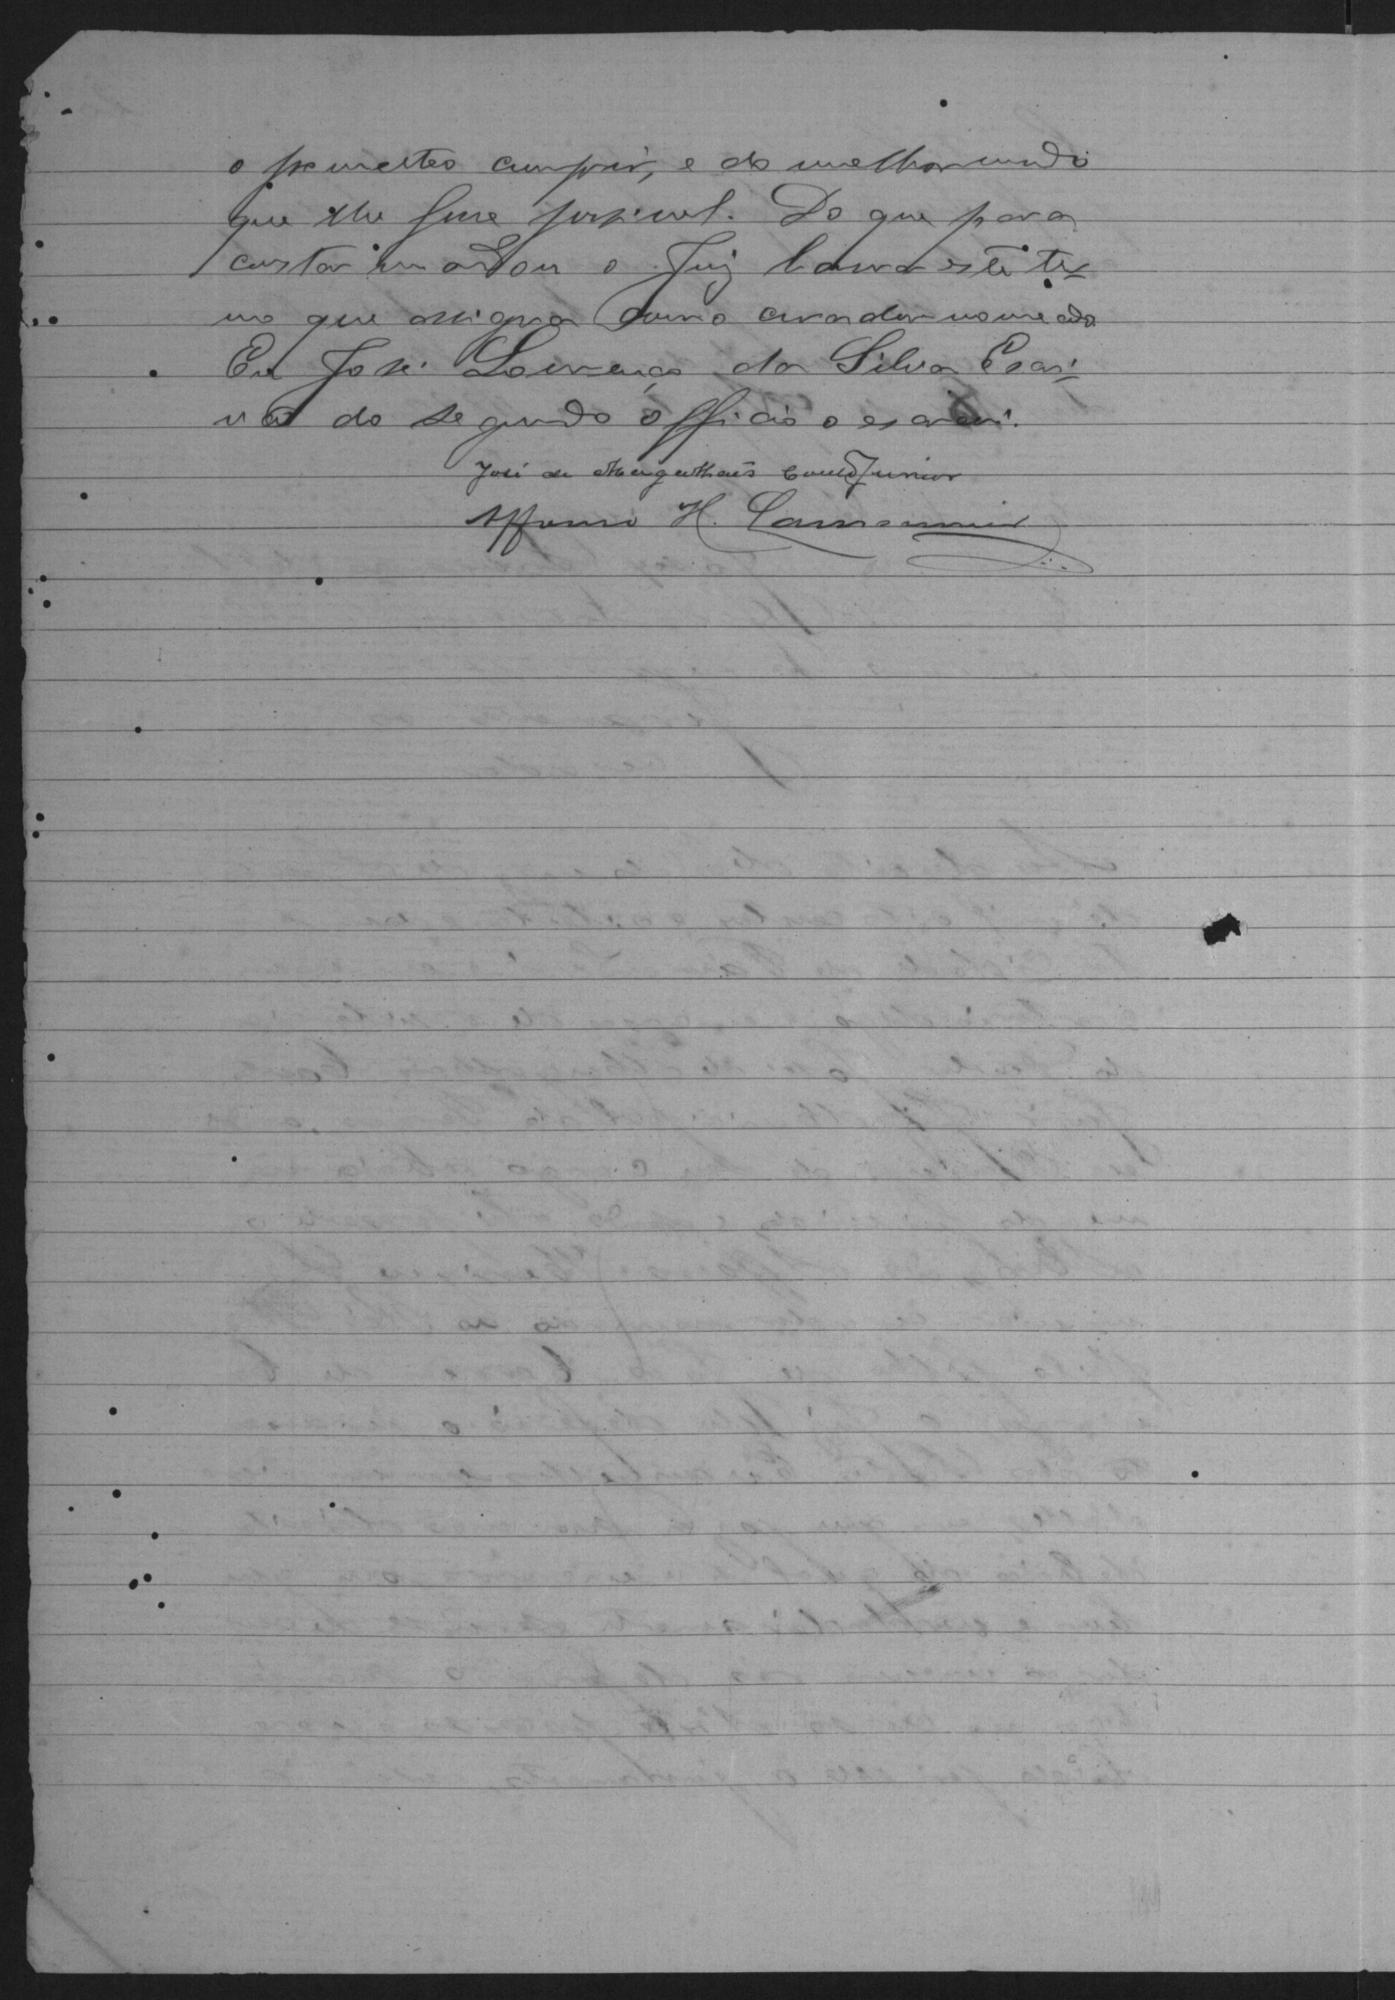 o prometteo cumprir, e do melhor modo
que lhe fosse possivel. Do que para
constar mandou o Juiz lavrar este ter-
mo que assigna como curador nomeado
Eu José Lourenço da Silva Escri-
vão do segundo officio o escrevi.
José de Magalhães Couto Junior
Affonso H.